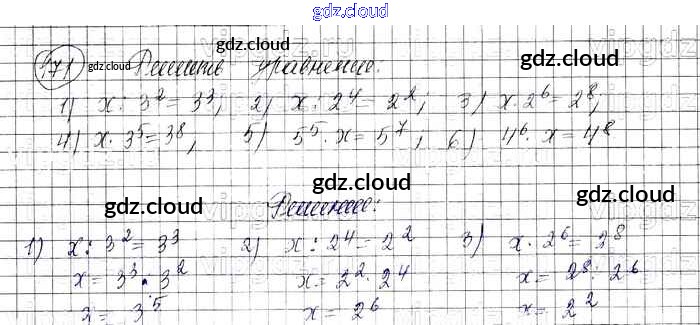 gdz.cloud
gdz.cloud
171 gdz.cloud Решить уравнение: gdz.cloud
1) x : 3² = 3³, 2) x : 2⁴ = 2²; 3) x · 2⁶ = 2⁸,
4) x · 3⁵ = 3⁸, 5) 5⁵ · x = 5⁷, 6) 4⁶ · x = 4⁸
gdz.cloud gdz.cloud gdz.cloud
Решение:
1) x : 3² = 3³ 2) x : 2⁴ = 2² 3) x · 2⁶ = 2⁸
x = 3³ · 3² x = 2² · 2⁴ x = 2⁸ : 2⁶
x = 3⁵ x = 2⁶ x = 2²